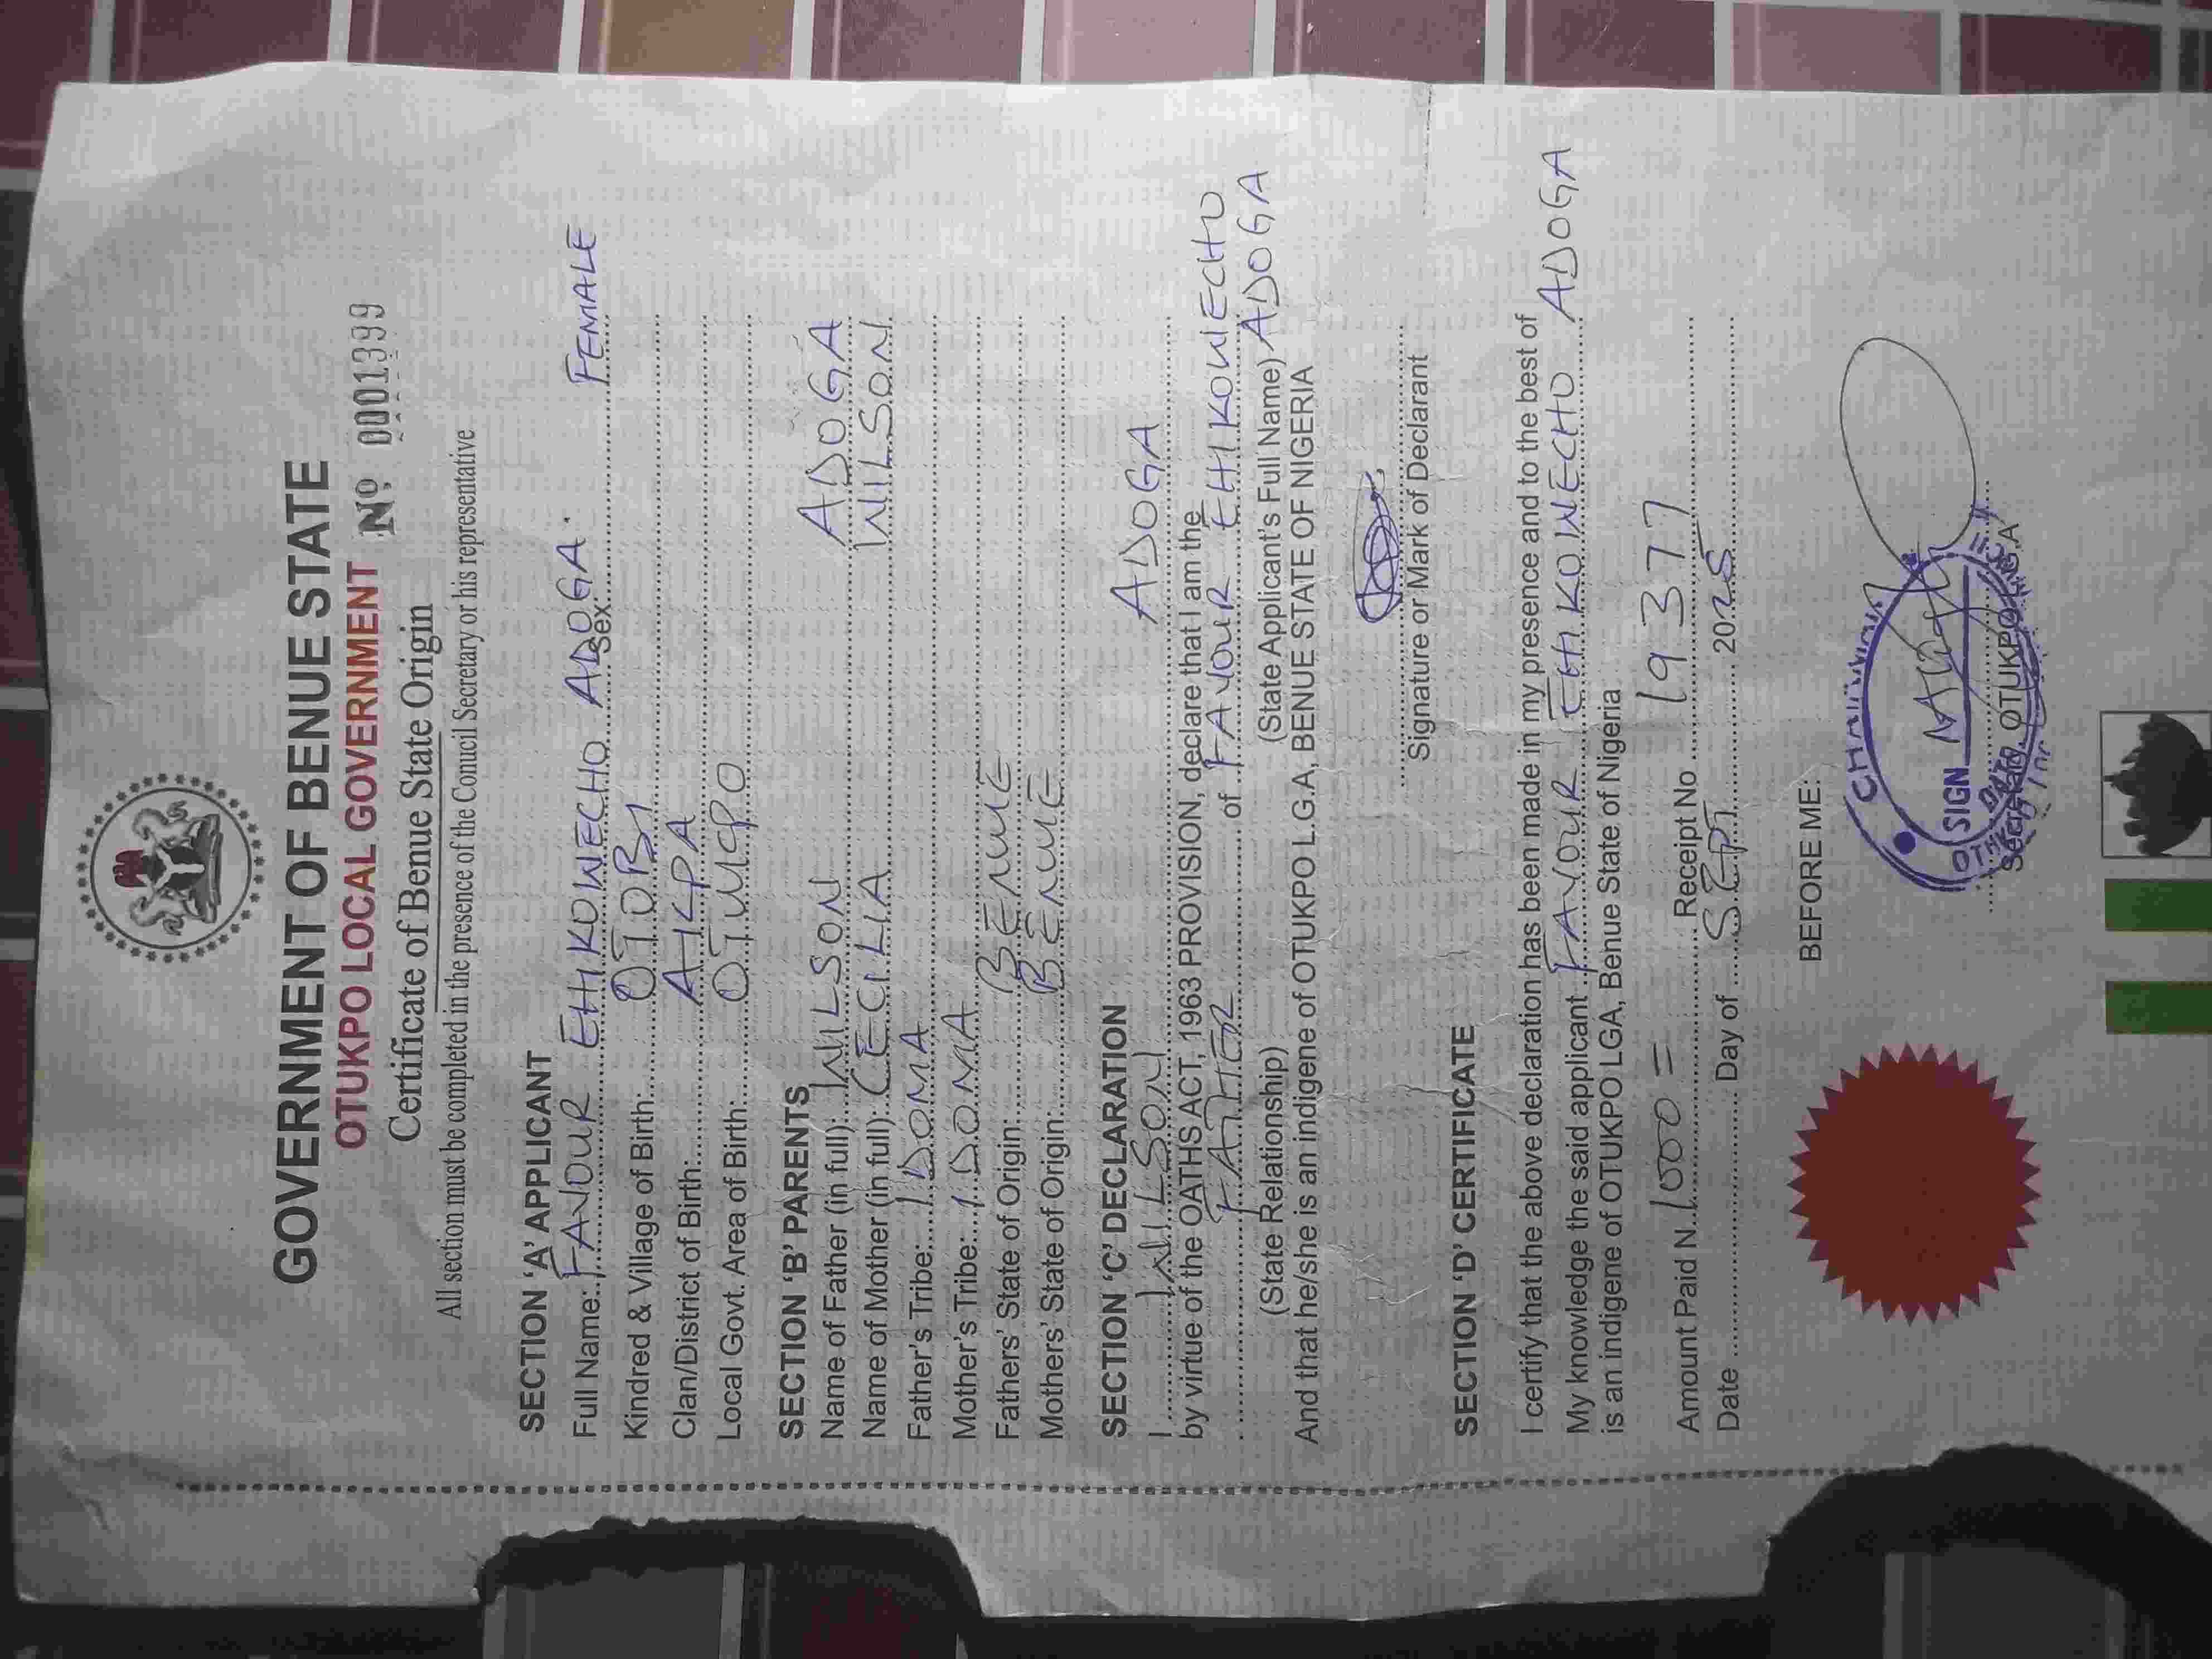 GOVERNMENT OF BENUE STATE
OTUKPO LOCAL GOVERNMENT Nº 0001399
Certificate of Benue State Origin
All section must be completed in the presence of the Conucil Secretary or his representative
SECTION ‘A’ APPLICANT
Full Name: FAVOUR EHIKOWECHO ADOGA. Sex FEMALE
Kindred & Village of Birth: OTOBI
Clan/District of Birth: AKPA
Local Govt. Area of Birth: OTUKPO
SECTION ‘B’ PARENTS
Name of Father (in full): WILSON ADOGA
Name of Mother (in full): CECILIA WILSON
Father's Tribe: IDOMA
Mother's Tribe: IDOMA
Fathers' State of Origin: BENUE
Mothers' State of Origin: BENUE
SECTION ‘C’ DECLARATION
I WILSON ADOGA
by virtue of the OATHS ACT, 1963 PROVISION, declare that I am the
FATHER of FAVOUR EHIKOWECHO
(State Relationship) (State Applicant's Full Name) ADOGA
And that he/she is an indigene of OTUKPO L.G.A, BENUE STATE OF NIGERIA
Signature or Mark of Declarant
SECTION ‘D’ CERTIFICATE
I certify that the above declaration has been made in my presence and to the best of
My knowledge the said applicant FAVOUR EHIKOWECHO ADOGA
is an indigene of OTUKPO LGA, Benue State of Nigeria
Amount Paid N 1000 = Receipt No 19377
Date Day of SEPT 2025
BEFORE ME:
CHAIRMAN
SIGN
Secretary, OTUKPO L.G.A